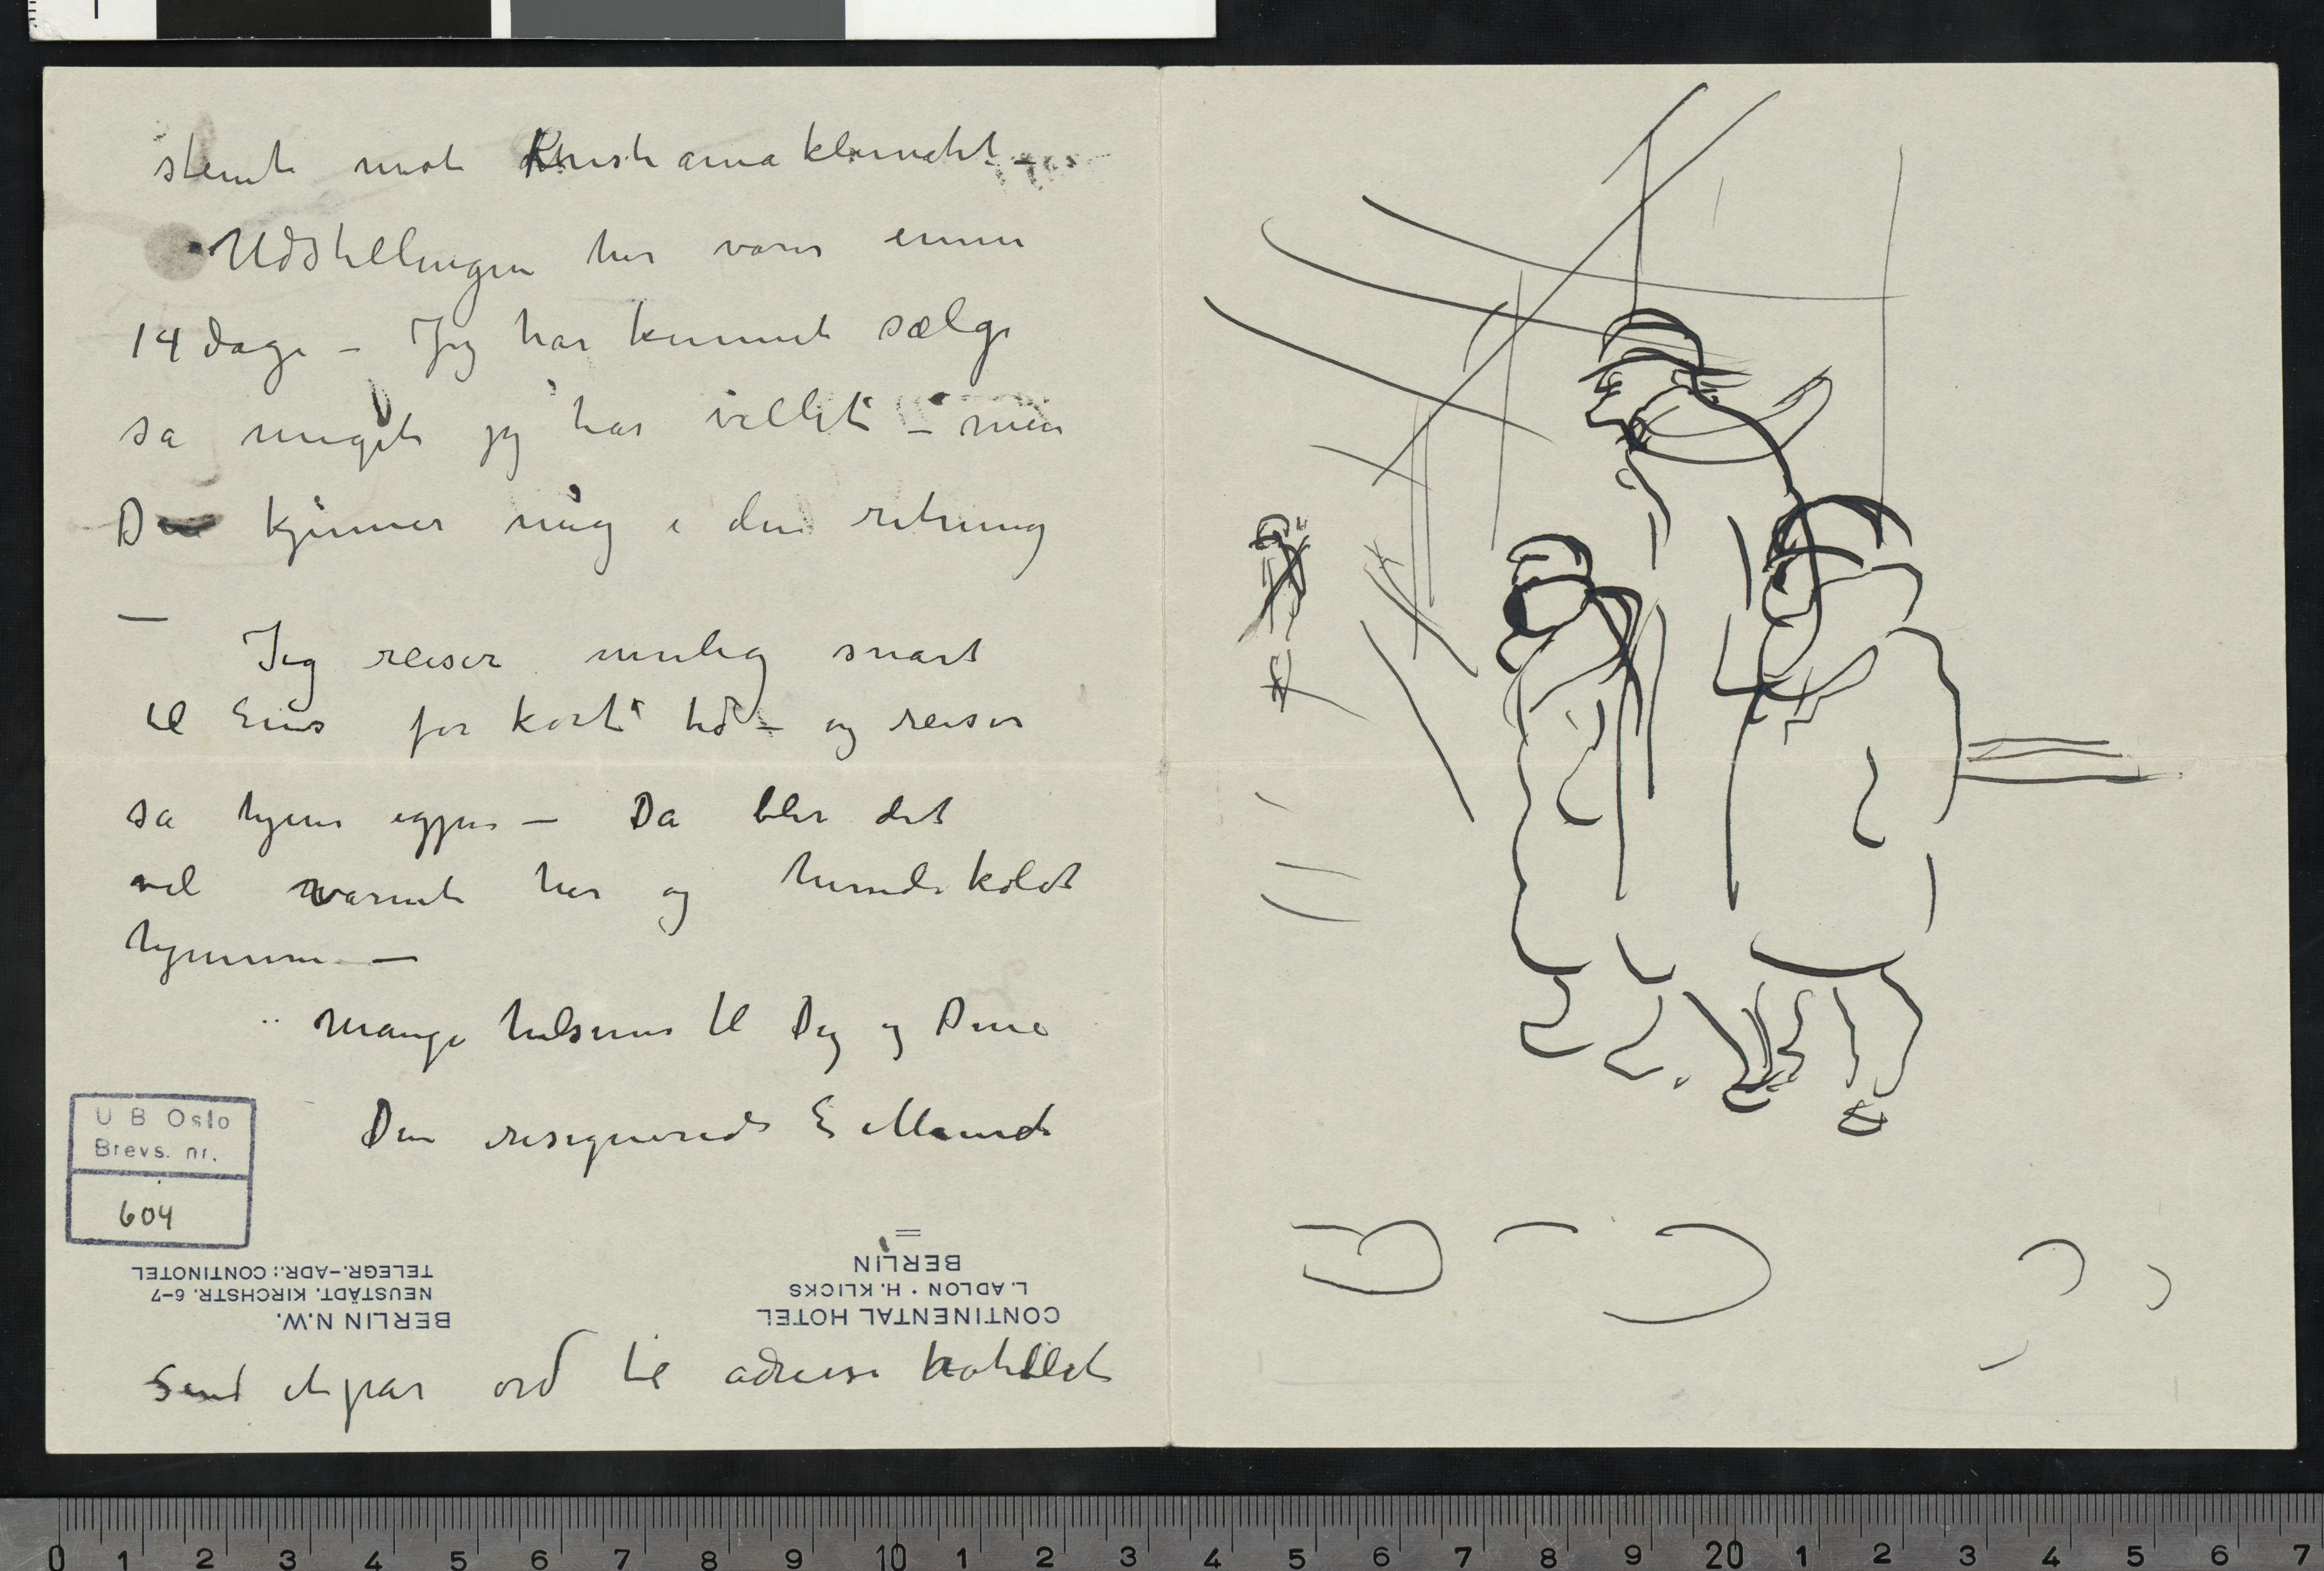 stemt mot Kristianiaklimatet –
Udstillingen her varer ennu
14 dage – Jeg har kunnet sælge
sa meget jeg har villet – men
Du kjenner meg i den retning
—
Jeg reiser mulig snart
til Ems for kort tid – og reiser
sa hjem igjen – Da blir det
vel varmt her og hundekoldt
hjemme —
Mange hilsener til Dig og Dine
Din resignerede E Munch
U B Oslo
Brevs. nr.
604
CONTINENTAL HOTEL
L. ADLON · H. KLICKS
BERLIN
BERLIN N.W.
NEUSTÄDT. KIRCHSTR. 6-7
TELEGR.-ADR.: CONTINOTEL
Send et par ord til adresse hotellet
0 1 2 3 4 5 6 7 8 9 10 1 2 3 4 5 6 7 8 9 20 1 2 3 4 5 6 7